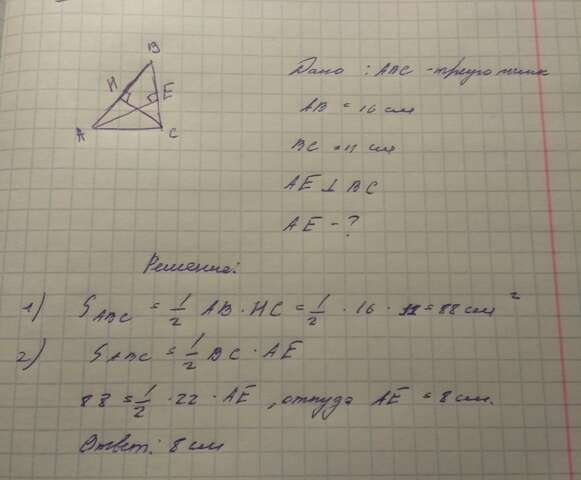 B
H
E
A
C
Дано : ABC - треугольник
AB = 16 см
BC = 11 см
AE ⊥ BC
AE - ?
Решение:
1) S ABC = 1/2 AB · HC = 1/2 · 16 · 11 = 88 см²
2) S ABC = 1/2 BC · AE
88 = 1/2 · 22 · AE , откуда AE = 8 см.
Ответ: 8 см